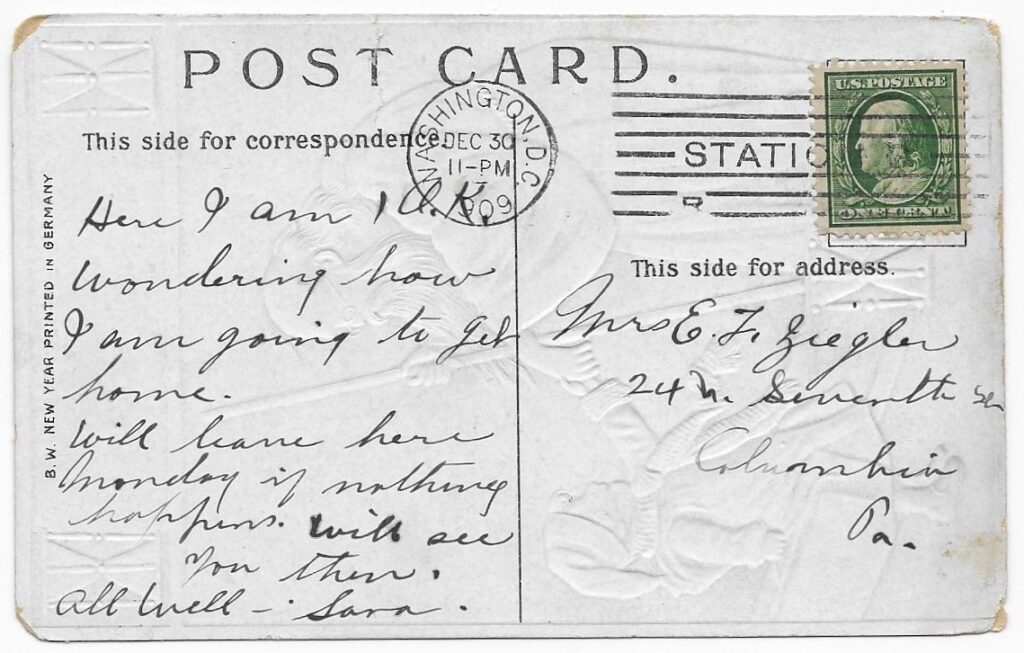 POST CARD.
This side for correspondence.
WASHINGTON, D.C.
DEC 30
11-PM
1909
STATIO
R
U.S. POSTAGE
This side for address.
B.W. NEW YEAR PRINTED IN GERMANY
Here I am, O.K.
wondering how
I am going to get
home.
Will leave here
Monday if nothing
happens. Will see
You then.
All Well - Sara.
Mrs E. F. Ziegler
24 N. Seventh
Columbia
Pa.